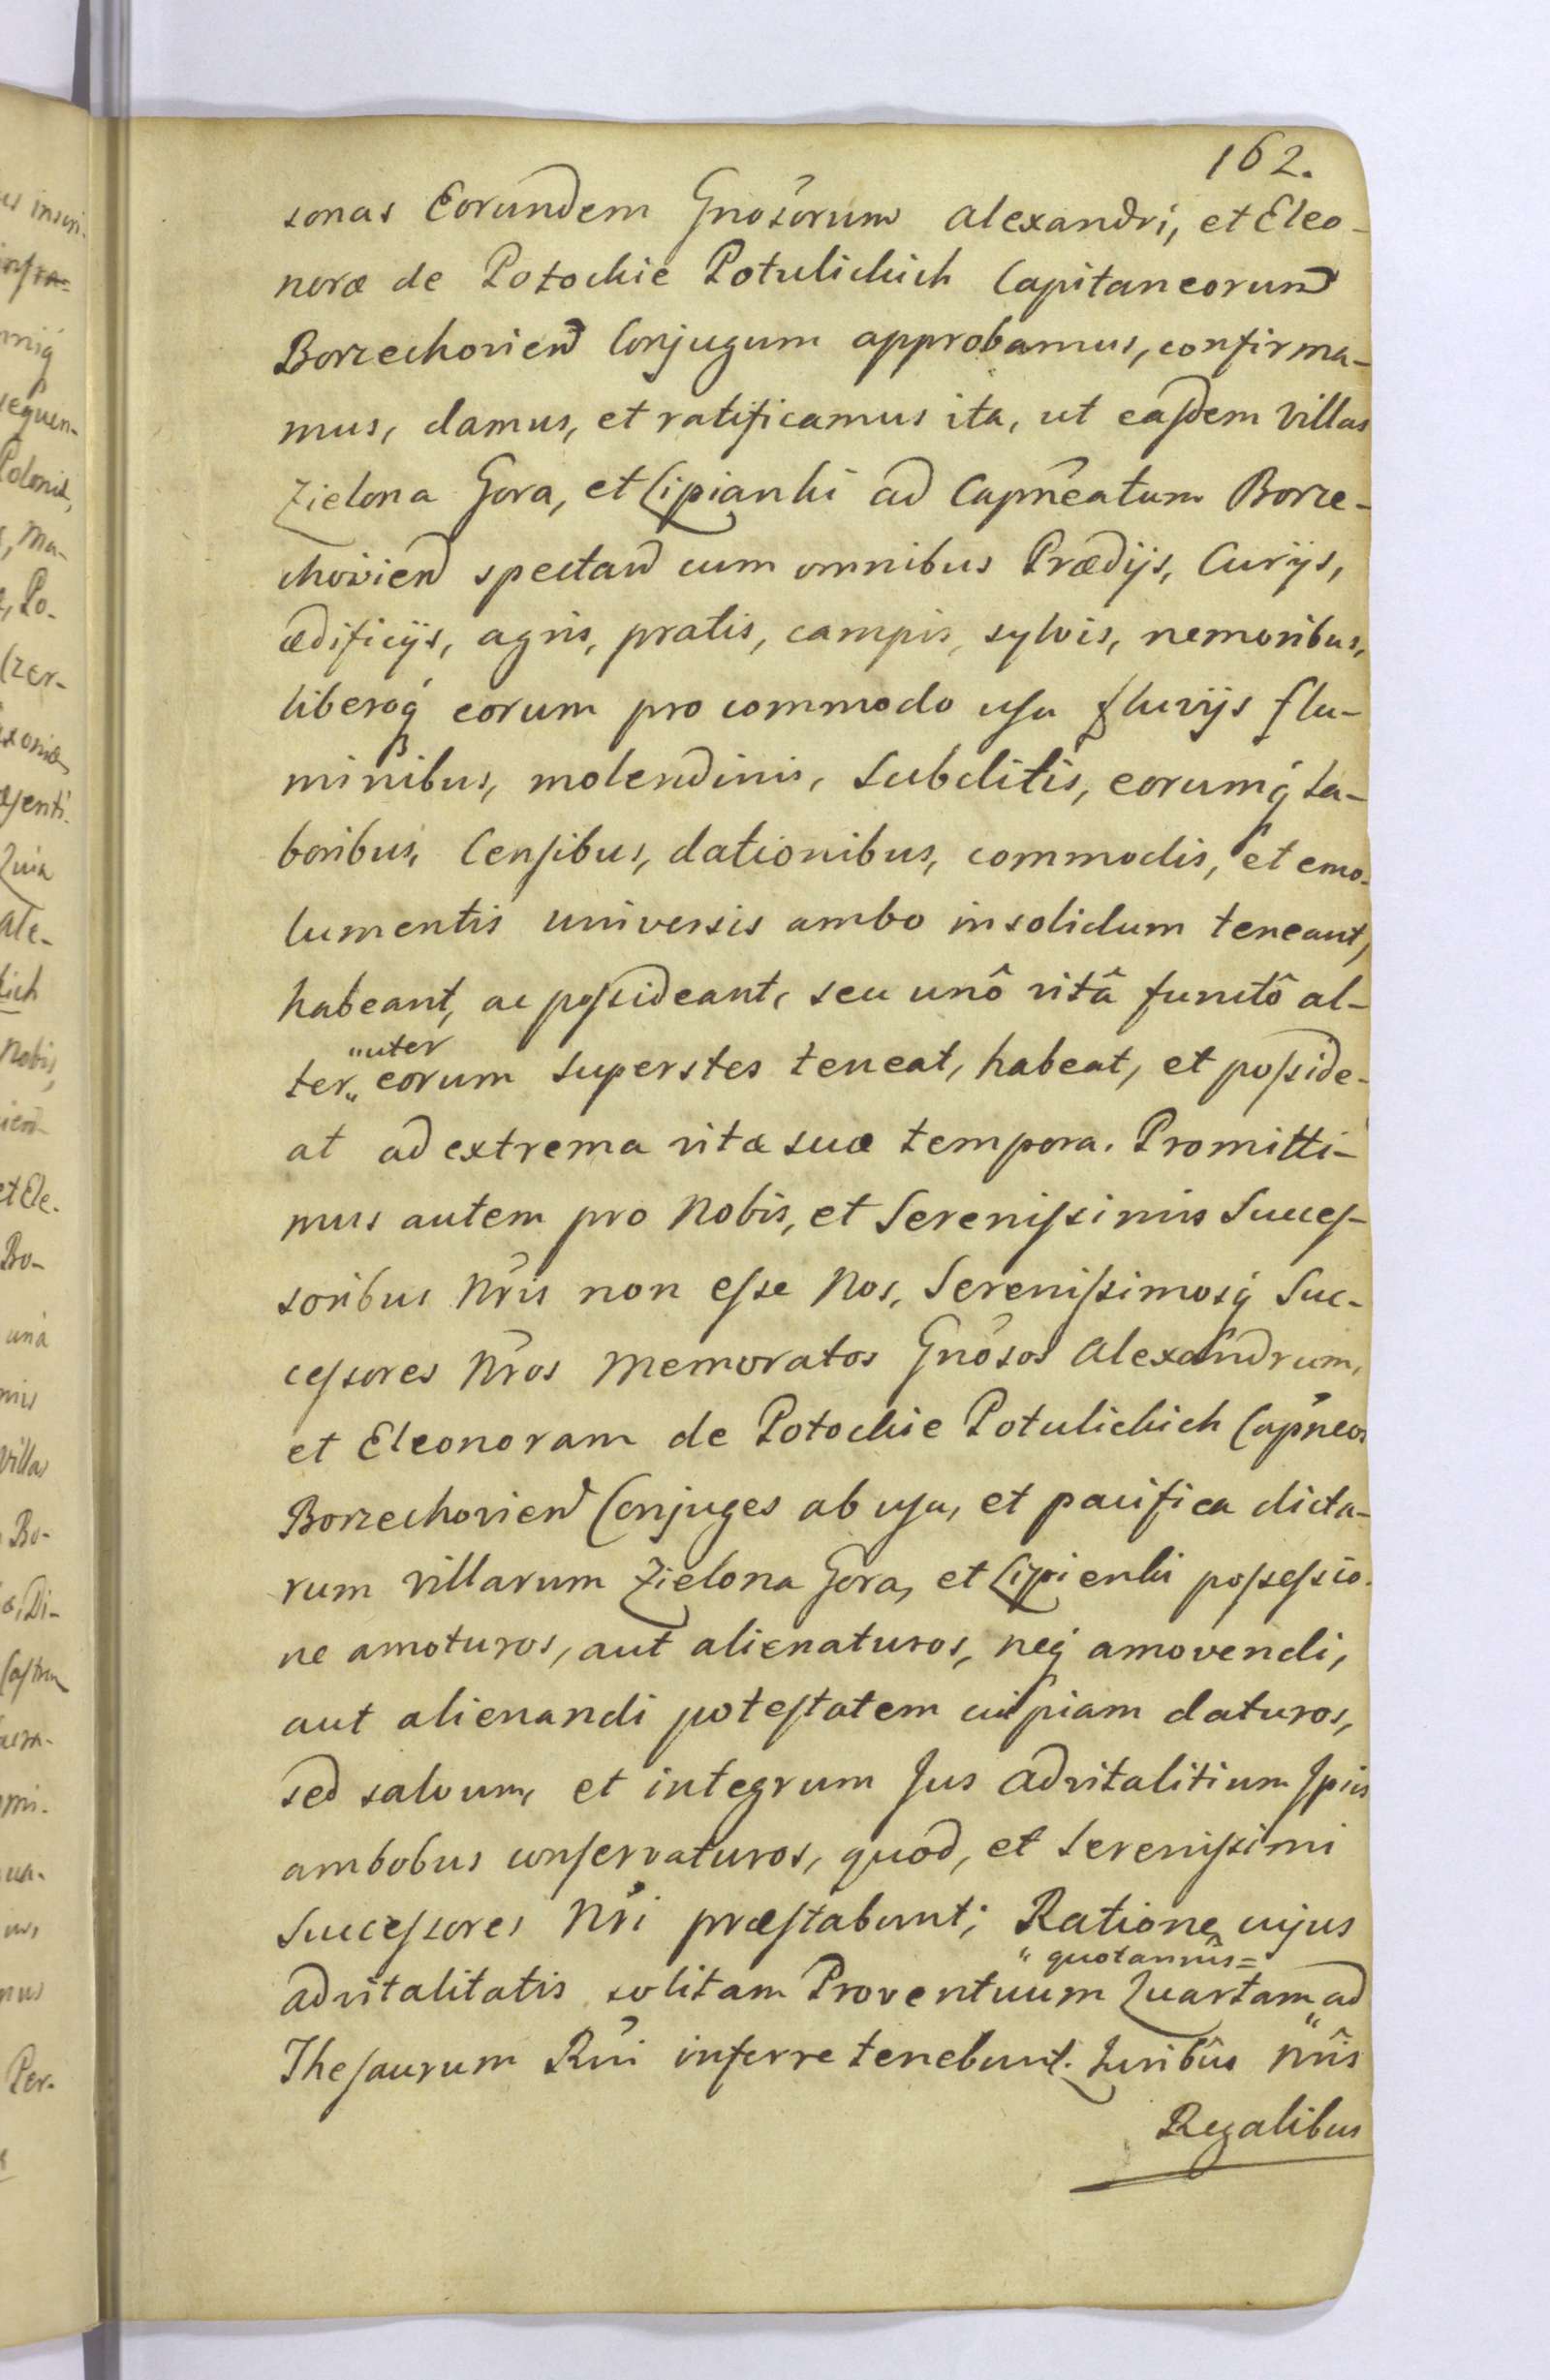 162.
sonas Eorundem Gnosorum Alexandri, et Eleo-
noræ de Potockie Potulickich Capitaneorum
Borzechovien Conjugum approbamus, confirma-
mus, damus, et ratificamus ita, ut easdem Villas
Zielona Gora, et Lipianki ad Capneatum Borze-
chovien spectan cum omnibus Prædijs, Curijs,
ædificijs, agris, pratis, campis, sylvis, nemoribus,
liberoq́ eorum pro commodo usu fluvijs flu-
minibus, molendinis, Subditis, eorumq́ La-
boribus, Censibus, dationibus, commodis, et emo-
lumentis universis ambo insolidum teneant,
habeant, ac possideant, seu unô vitâ functô al-
"uter
ter„ eorum superstes teneat, habeat, et posside-
at ad extrema vitæ suæ tempora. Promitti-
mus autem pro Nobis, et Serenissimis Succes-
soribus Nris non esse Nos, Serenissimosq́ Suc-
cessores Nros Memoratos Gnosos Alexandrum,
et Eleonoram de Potockie Potulickich Capneos
Borzechovien Conjuges ab usu, et pacifica dicta-
rum villarum Zielona Gora, et Lipienki possessio-
ne amoturos, aut alienaturos, neq́ amovendi,
aut alienandi potestatem cuipiam daturos,
sed salvum, et integrum Jus advitalitium Ipsis
ambobus conservaturos, quod, et Serenissimi
Successores Nri præstabunt; Ratione cujus
" quotannis =
advitalitatis solitam Proventuum Quartam„ ad
Thesaurum Rni inferre tenebunt. Juribus Nris
Regalibus